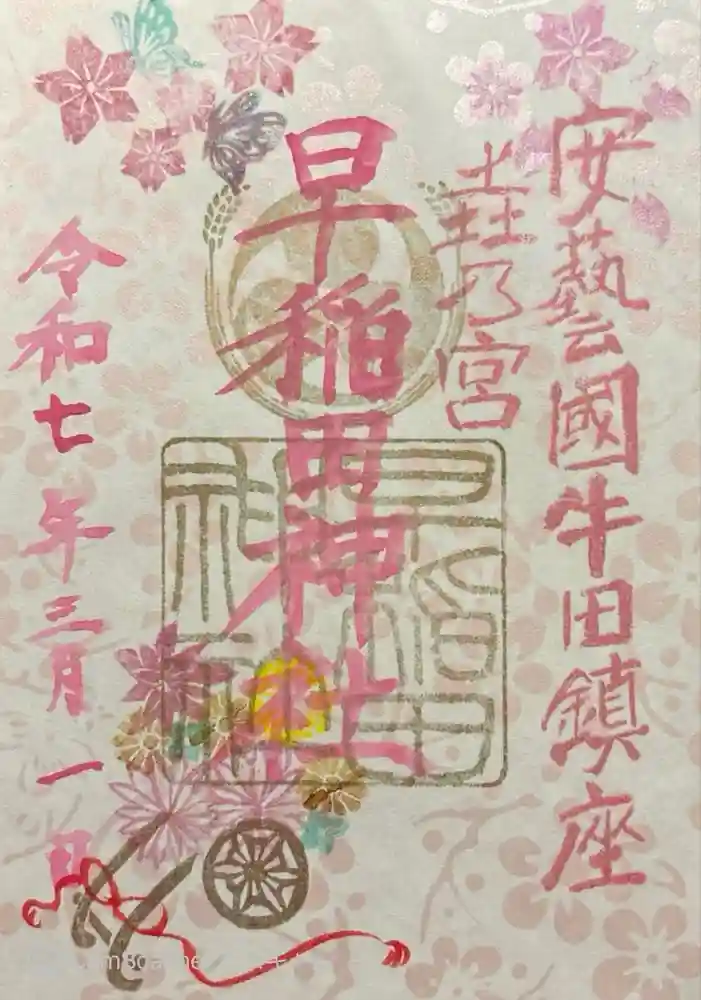 安藝國牛田鎮座
垚乃宮
早稲田神社
早稲田
神社
令和七年三月一日